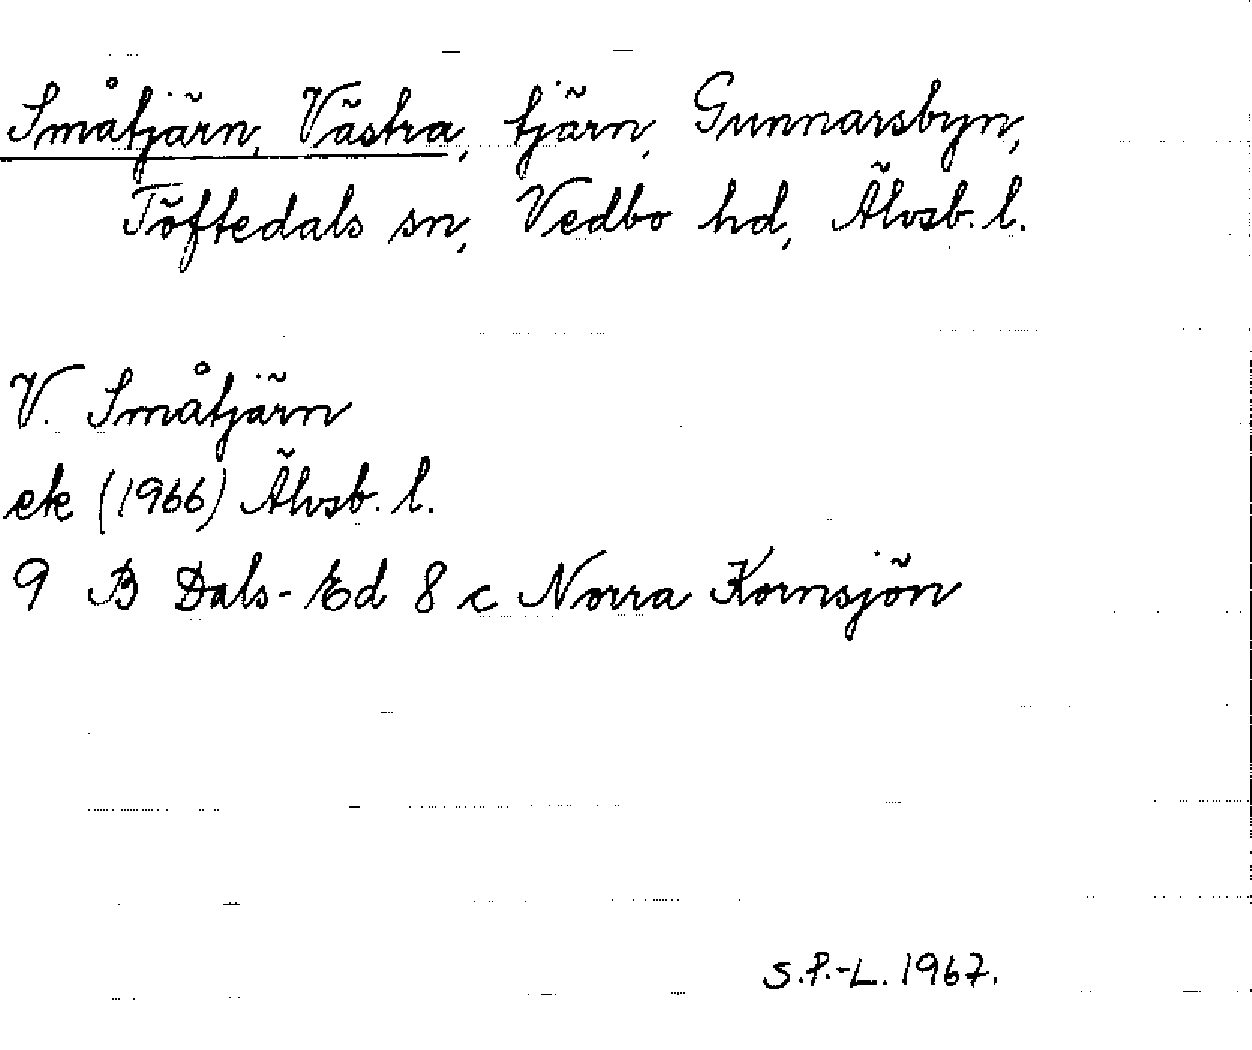 Småtjärn, Västra, tjärn, Gunnarsbyn,
Töftedals sn, Vedbo hd, Älvsb. l.
V. Småtjärn
ek (1966) Älvsb. l.
9 B Dals-Ed 8 c Norra Kornsjön
S.P.-L. 1967.